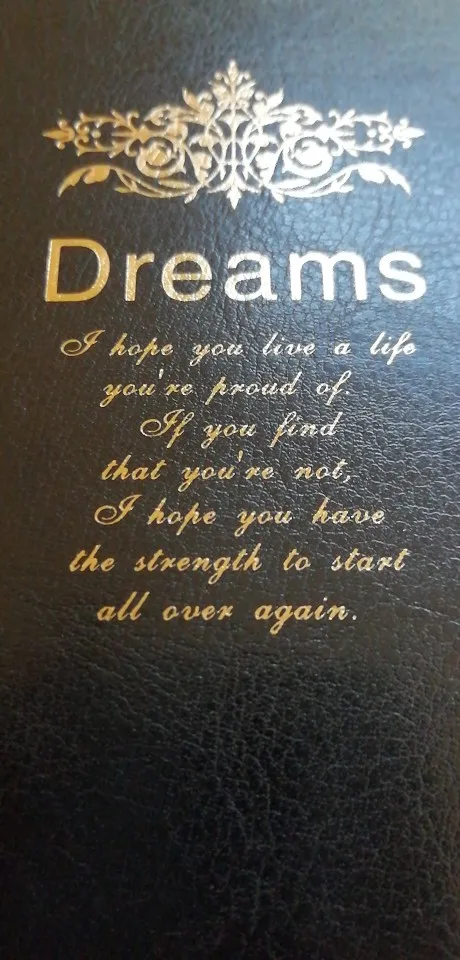 Dreams
I hope you live a life
you're proud of.
If you find
that you're not,
I hope you have
the strength to start
all over again.